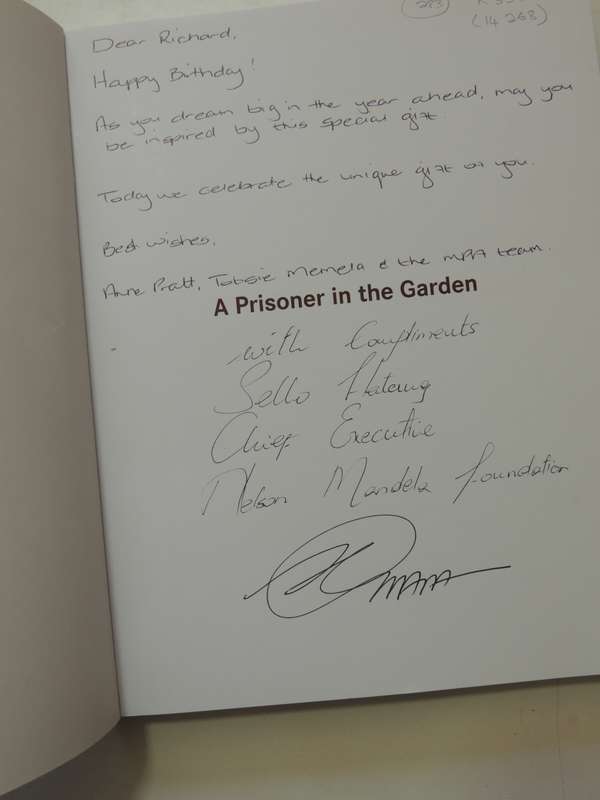 283
(14 268)
Dear Richard,
Happy Birthday!
As you dream big in the year ahead, may you
be inspired by this special gift.
Today we celebrate the unique gift of you.
Best wishes,
Anne Pratt, Tobsie Memela & the MPA team.
A Prisoner in the Garden
With Compliments
Sello Hatang
Chief Executive
Nelson Mandela Foundation